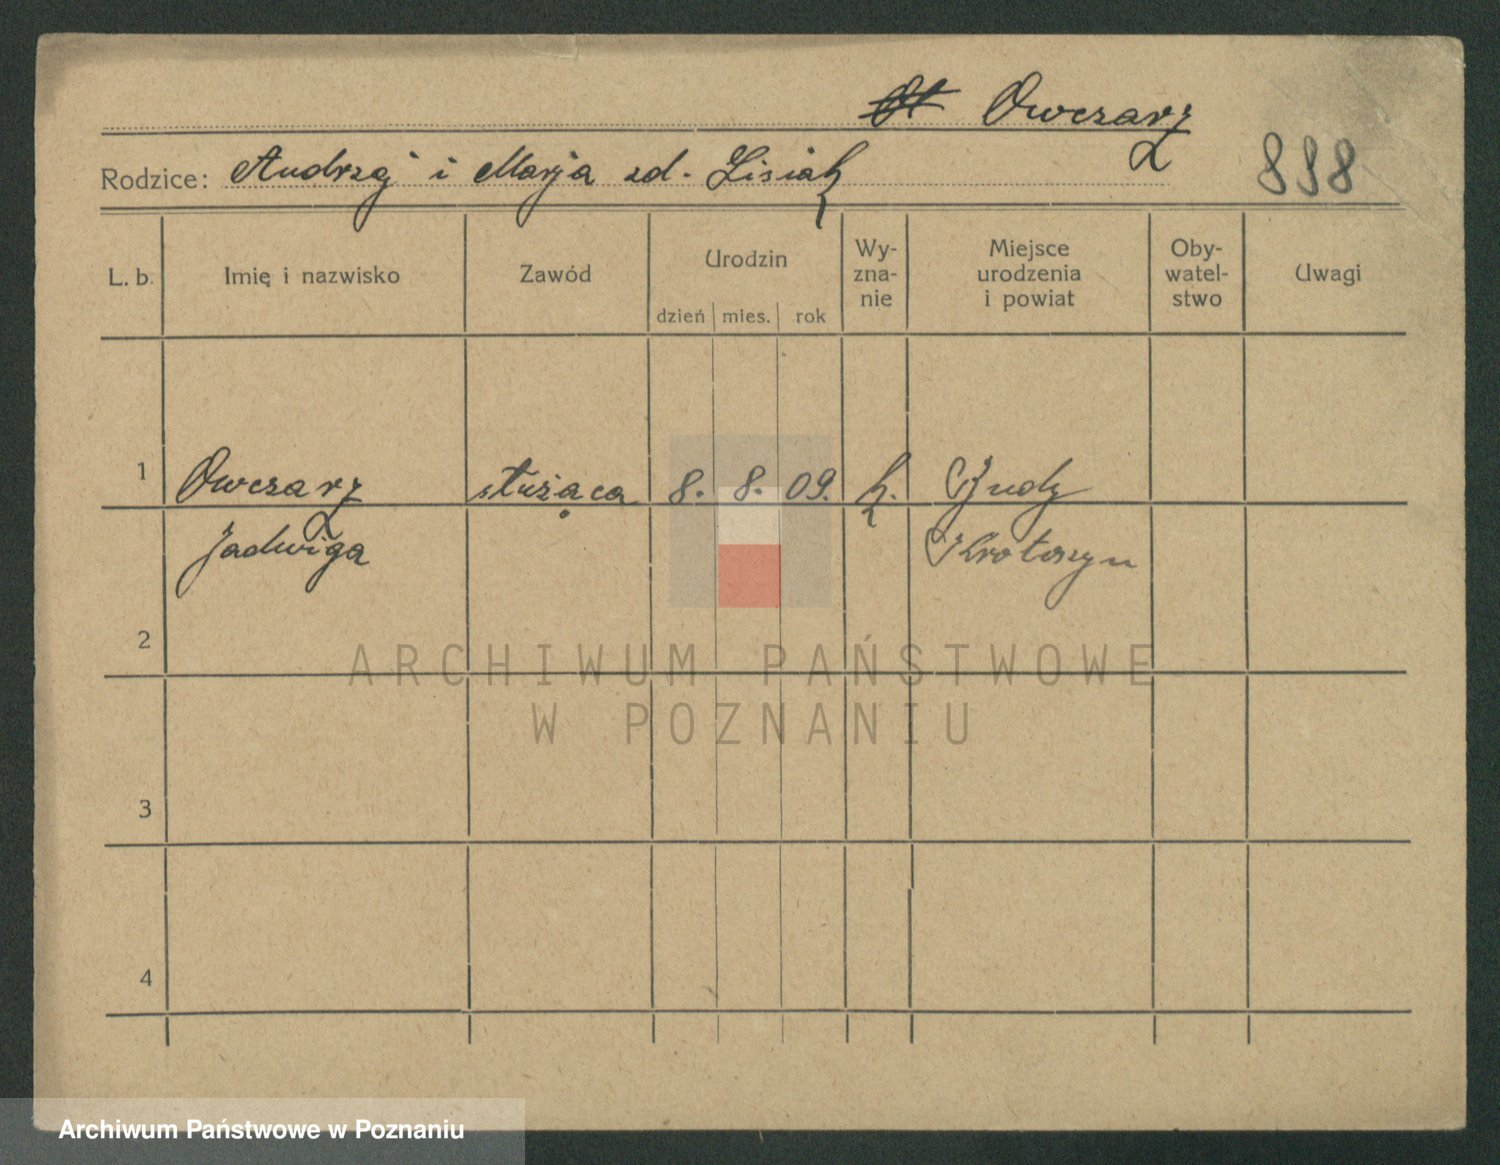 Owczarz
Rodzice: Andrzej i Marja zd. Lisiak
898
L. b. Imię i nazwisko Zawód Urodzin dzień mies. rok Wy-zna-nie Miejsce urodzenia i powiat Oby-watel-stwo Uwagi
1 Owczarz służąca 8. 8. 09. k.
Jadwiga Krotoszyn
2
ARCHIWUM PAŃSTWOWE
W POZNANIU
3
4
Archiwum Państwowe w Poznaniu